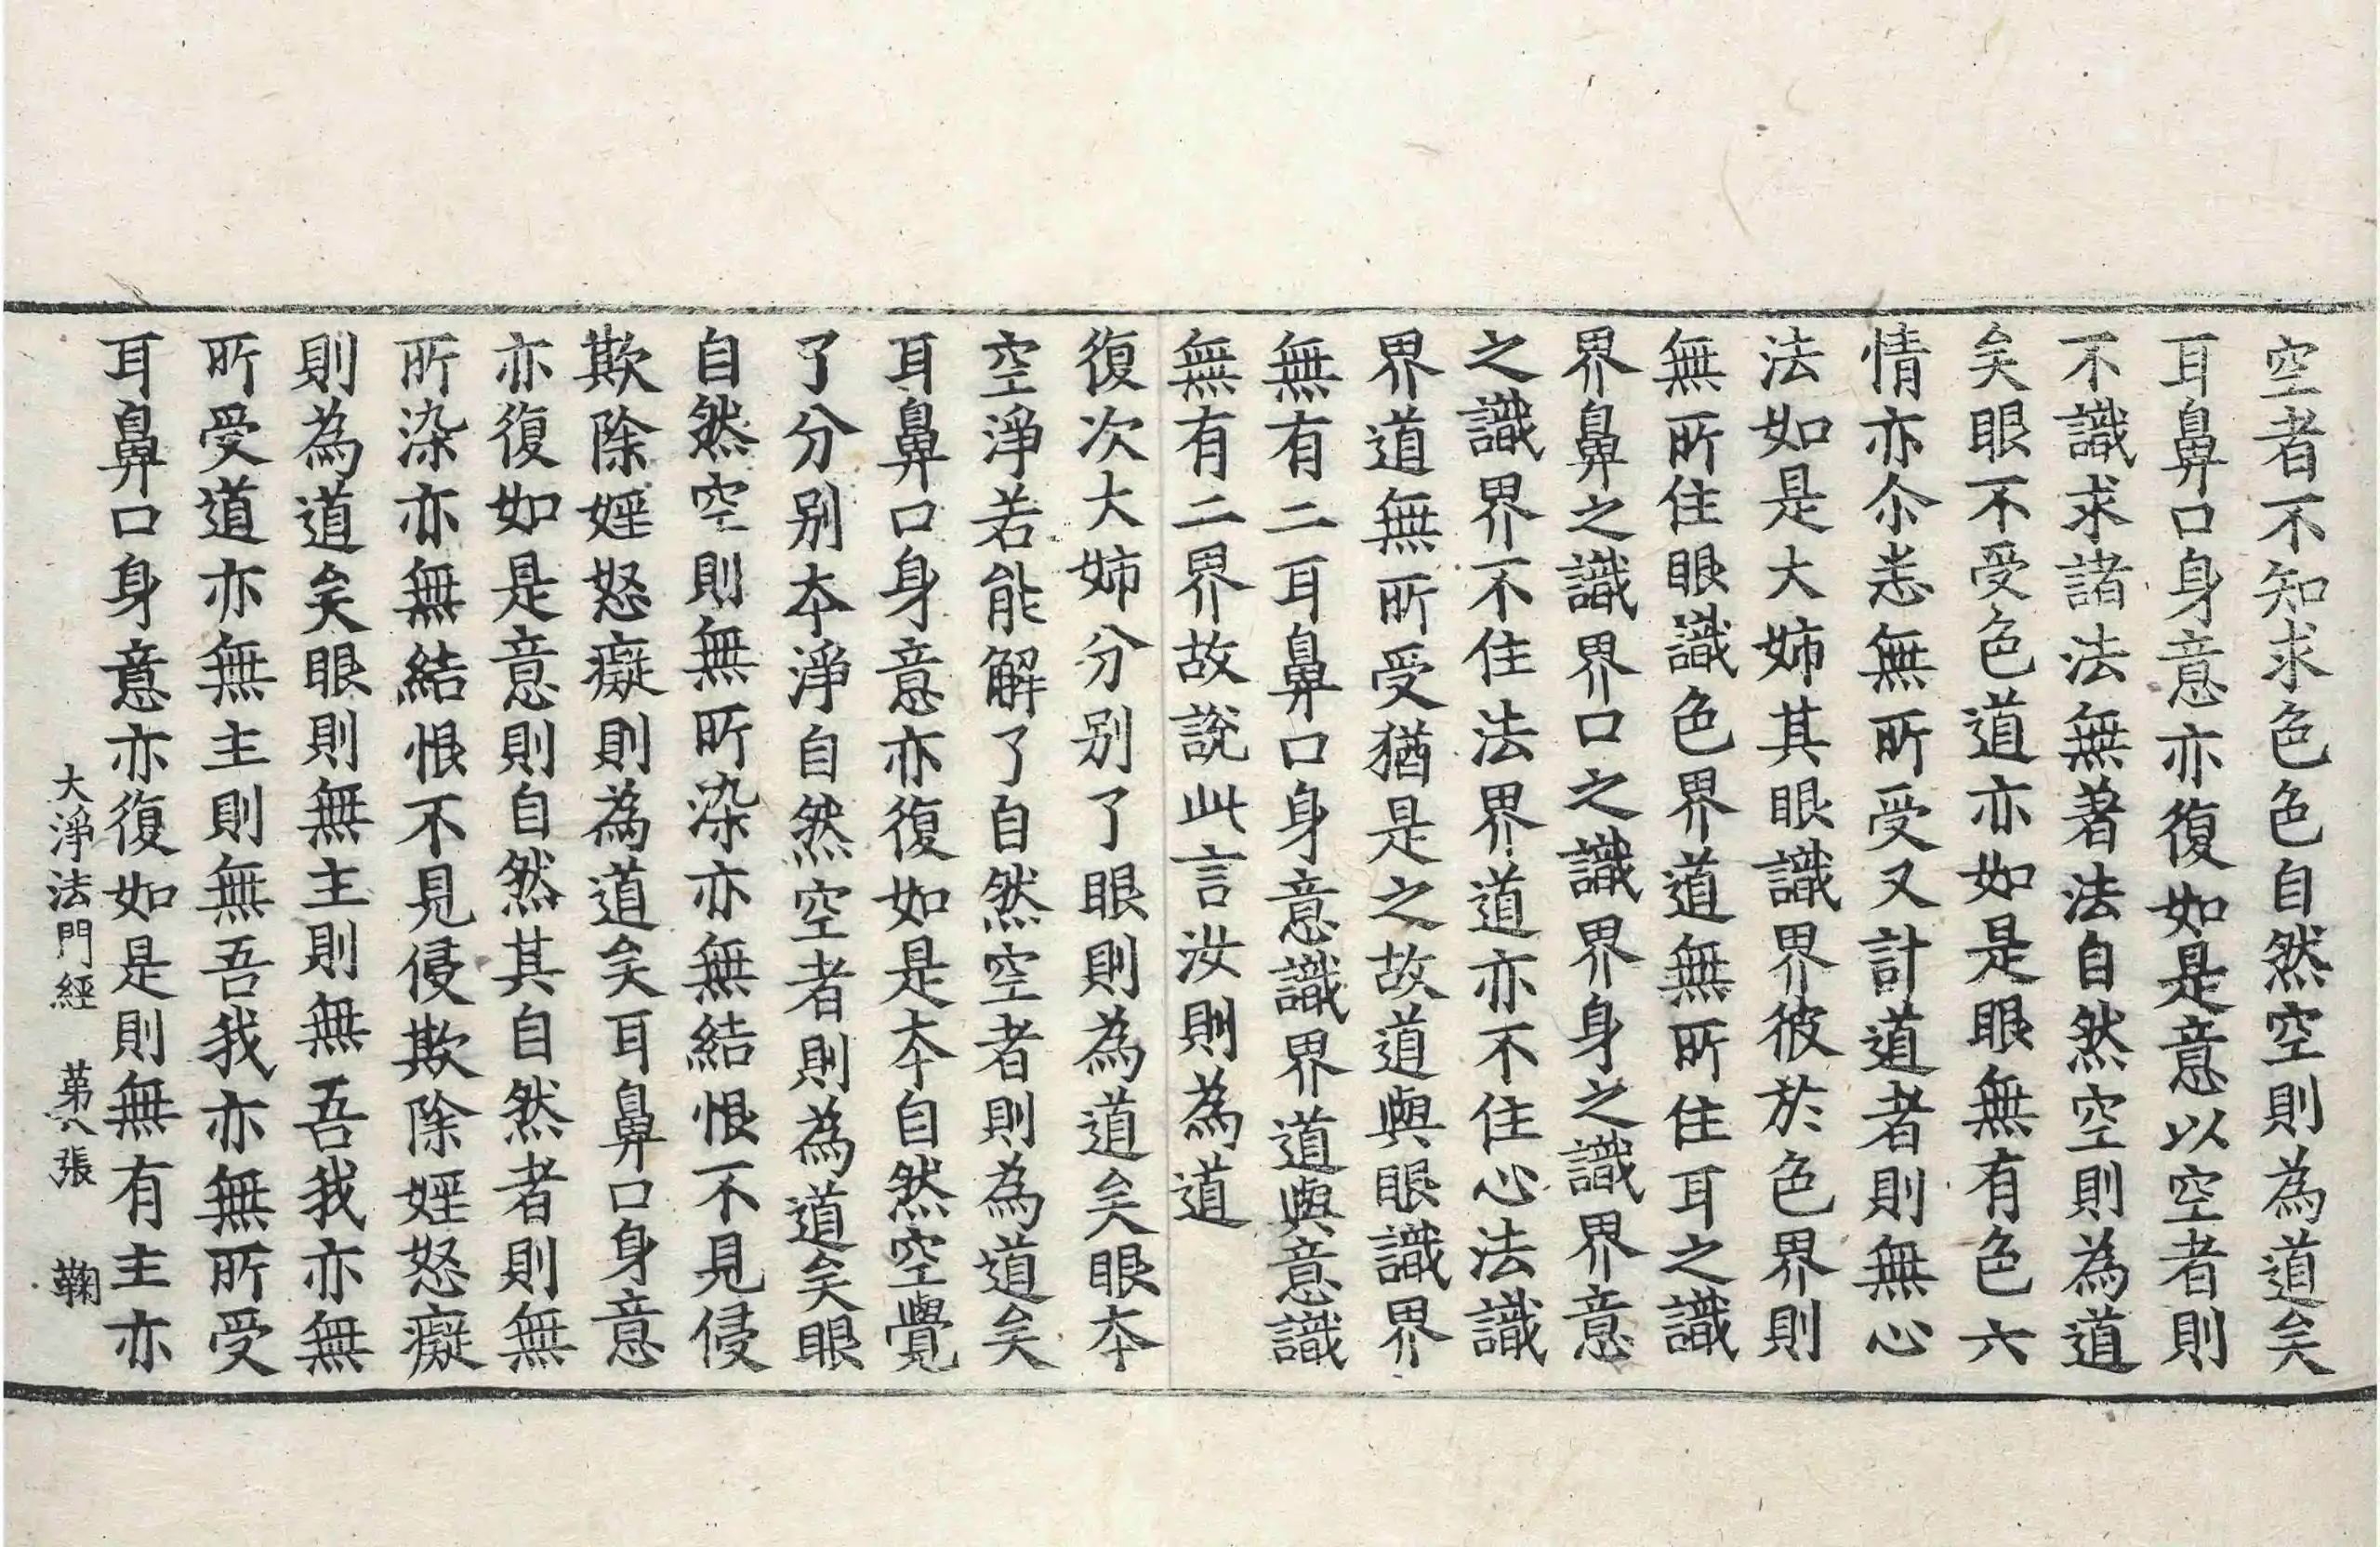 空者不知求色色自然空則為道矣
耳鼻口身意亦復如是意以空者則
不識求諸法無著法自然空則為道
矣眼不受色道亦如是眼無有色六
情亦尒恙無所受又計道者則無心
法如是大姉其眼識界彼於色界則
無所住眼識色界道無所住耳之識
界鼻之識界口之識界身之識界意
之識界不住法界道亦不住心法識
界道無所受猶是之故道與眼識界
無有二耳鼻口身意識界道與意識
無有二界故說此言汝則為道
復次大姉分別了眼則為道矣眼夲
空淨若能解了自然空者則為道矣
耳鼻口身意亦復如是夲自然空覺
了分別夲淨自然空者則為道矣眼
自然空則無所染亦無結恨不見侵
欺除婬怒癡則為道矣耳鼻口身意
亦復如是意則自然其自然者則無
所染亦無結恨不見侵欺除婬怒癡
則為道矣眼則無主則無吾我亦無
所受道亦無主則無吾我亦無所受
耳鼻口身意亦復如是則無有主亦
大淨法門經 苐六張 鞠